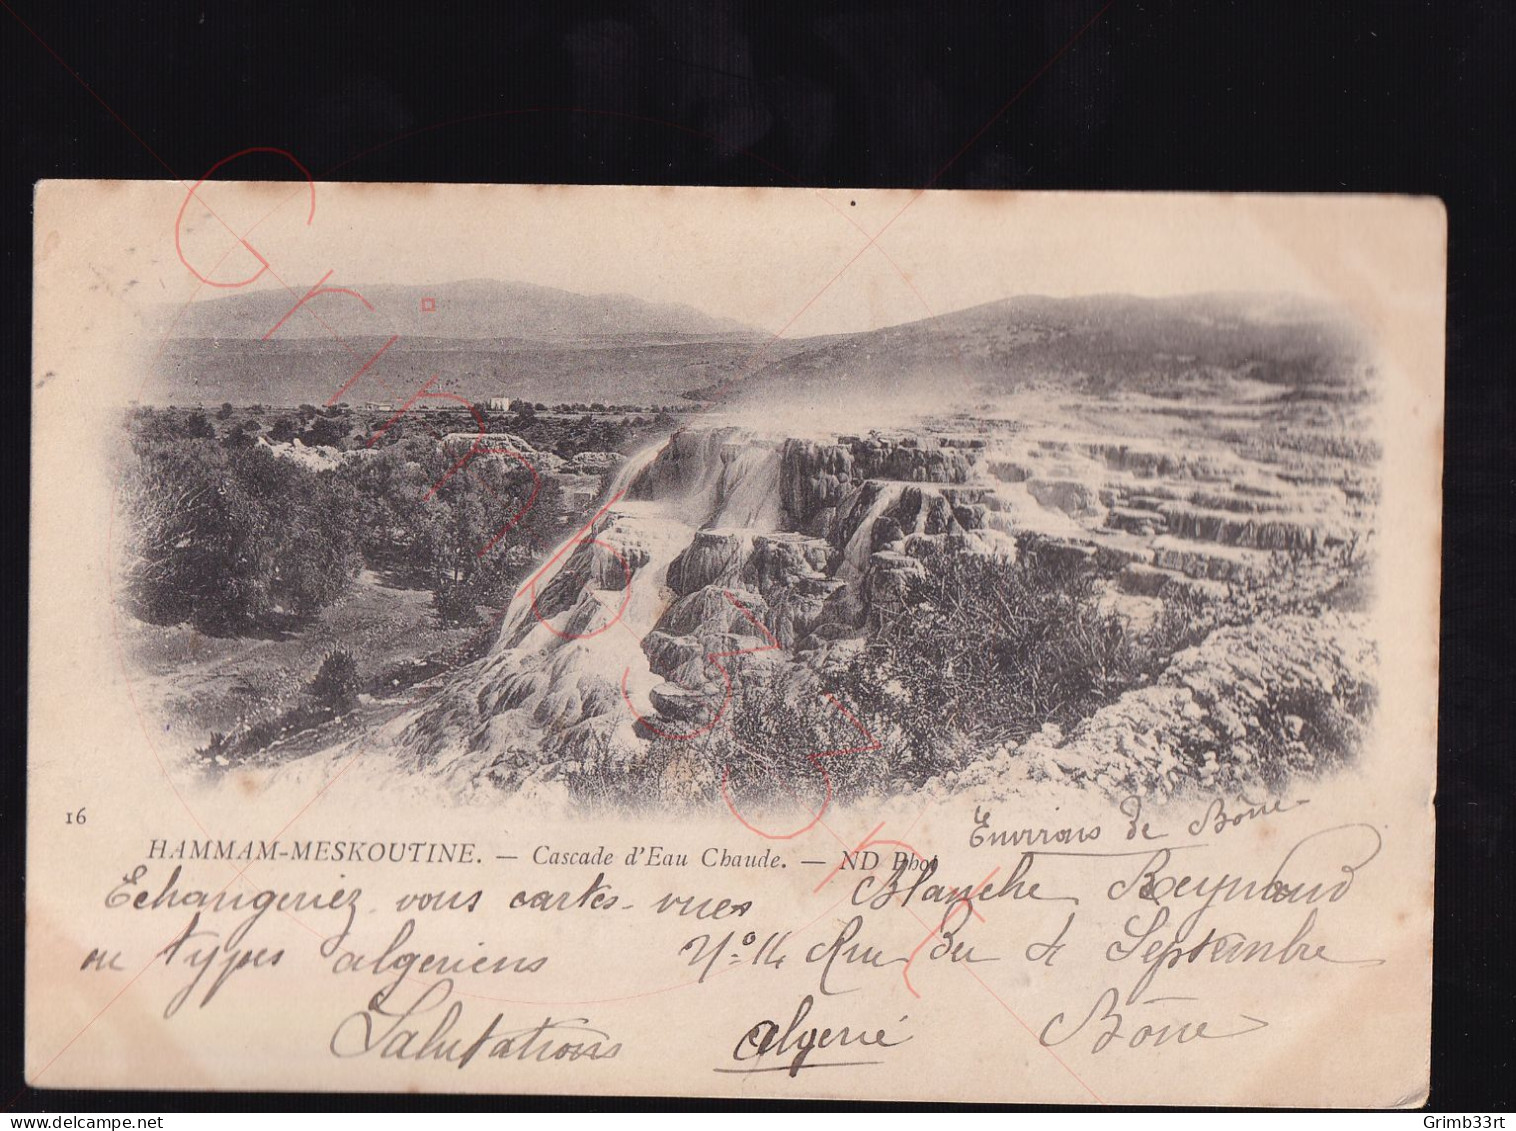 16
HAMMAM-MESKOUTINE. — Cascade d'Eau Chaude. — ND Phot
Environs de Bône
Echangeriez vous cartes-vues
ou types algeriens
Salutations
Blanche Reynaud
N° 14 Rue du 4 Septembre
Algerié Bône
Grimb33rt
Grimb33rt